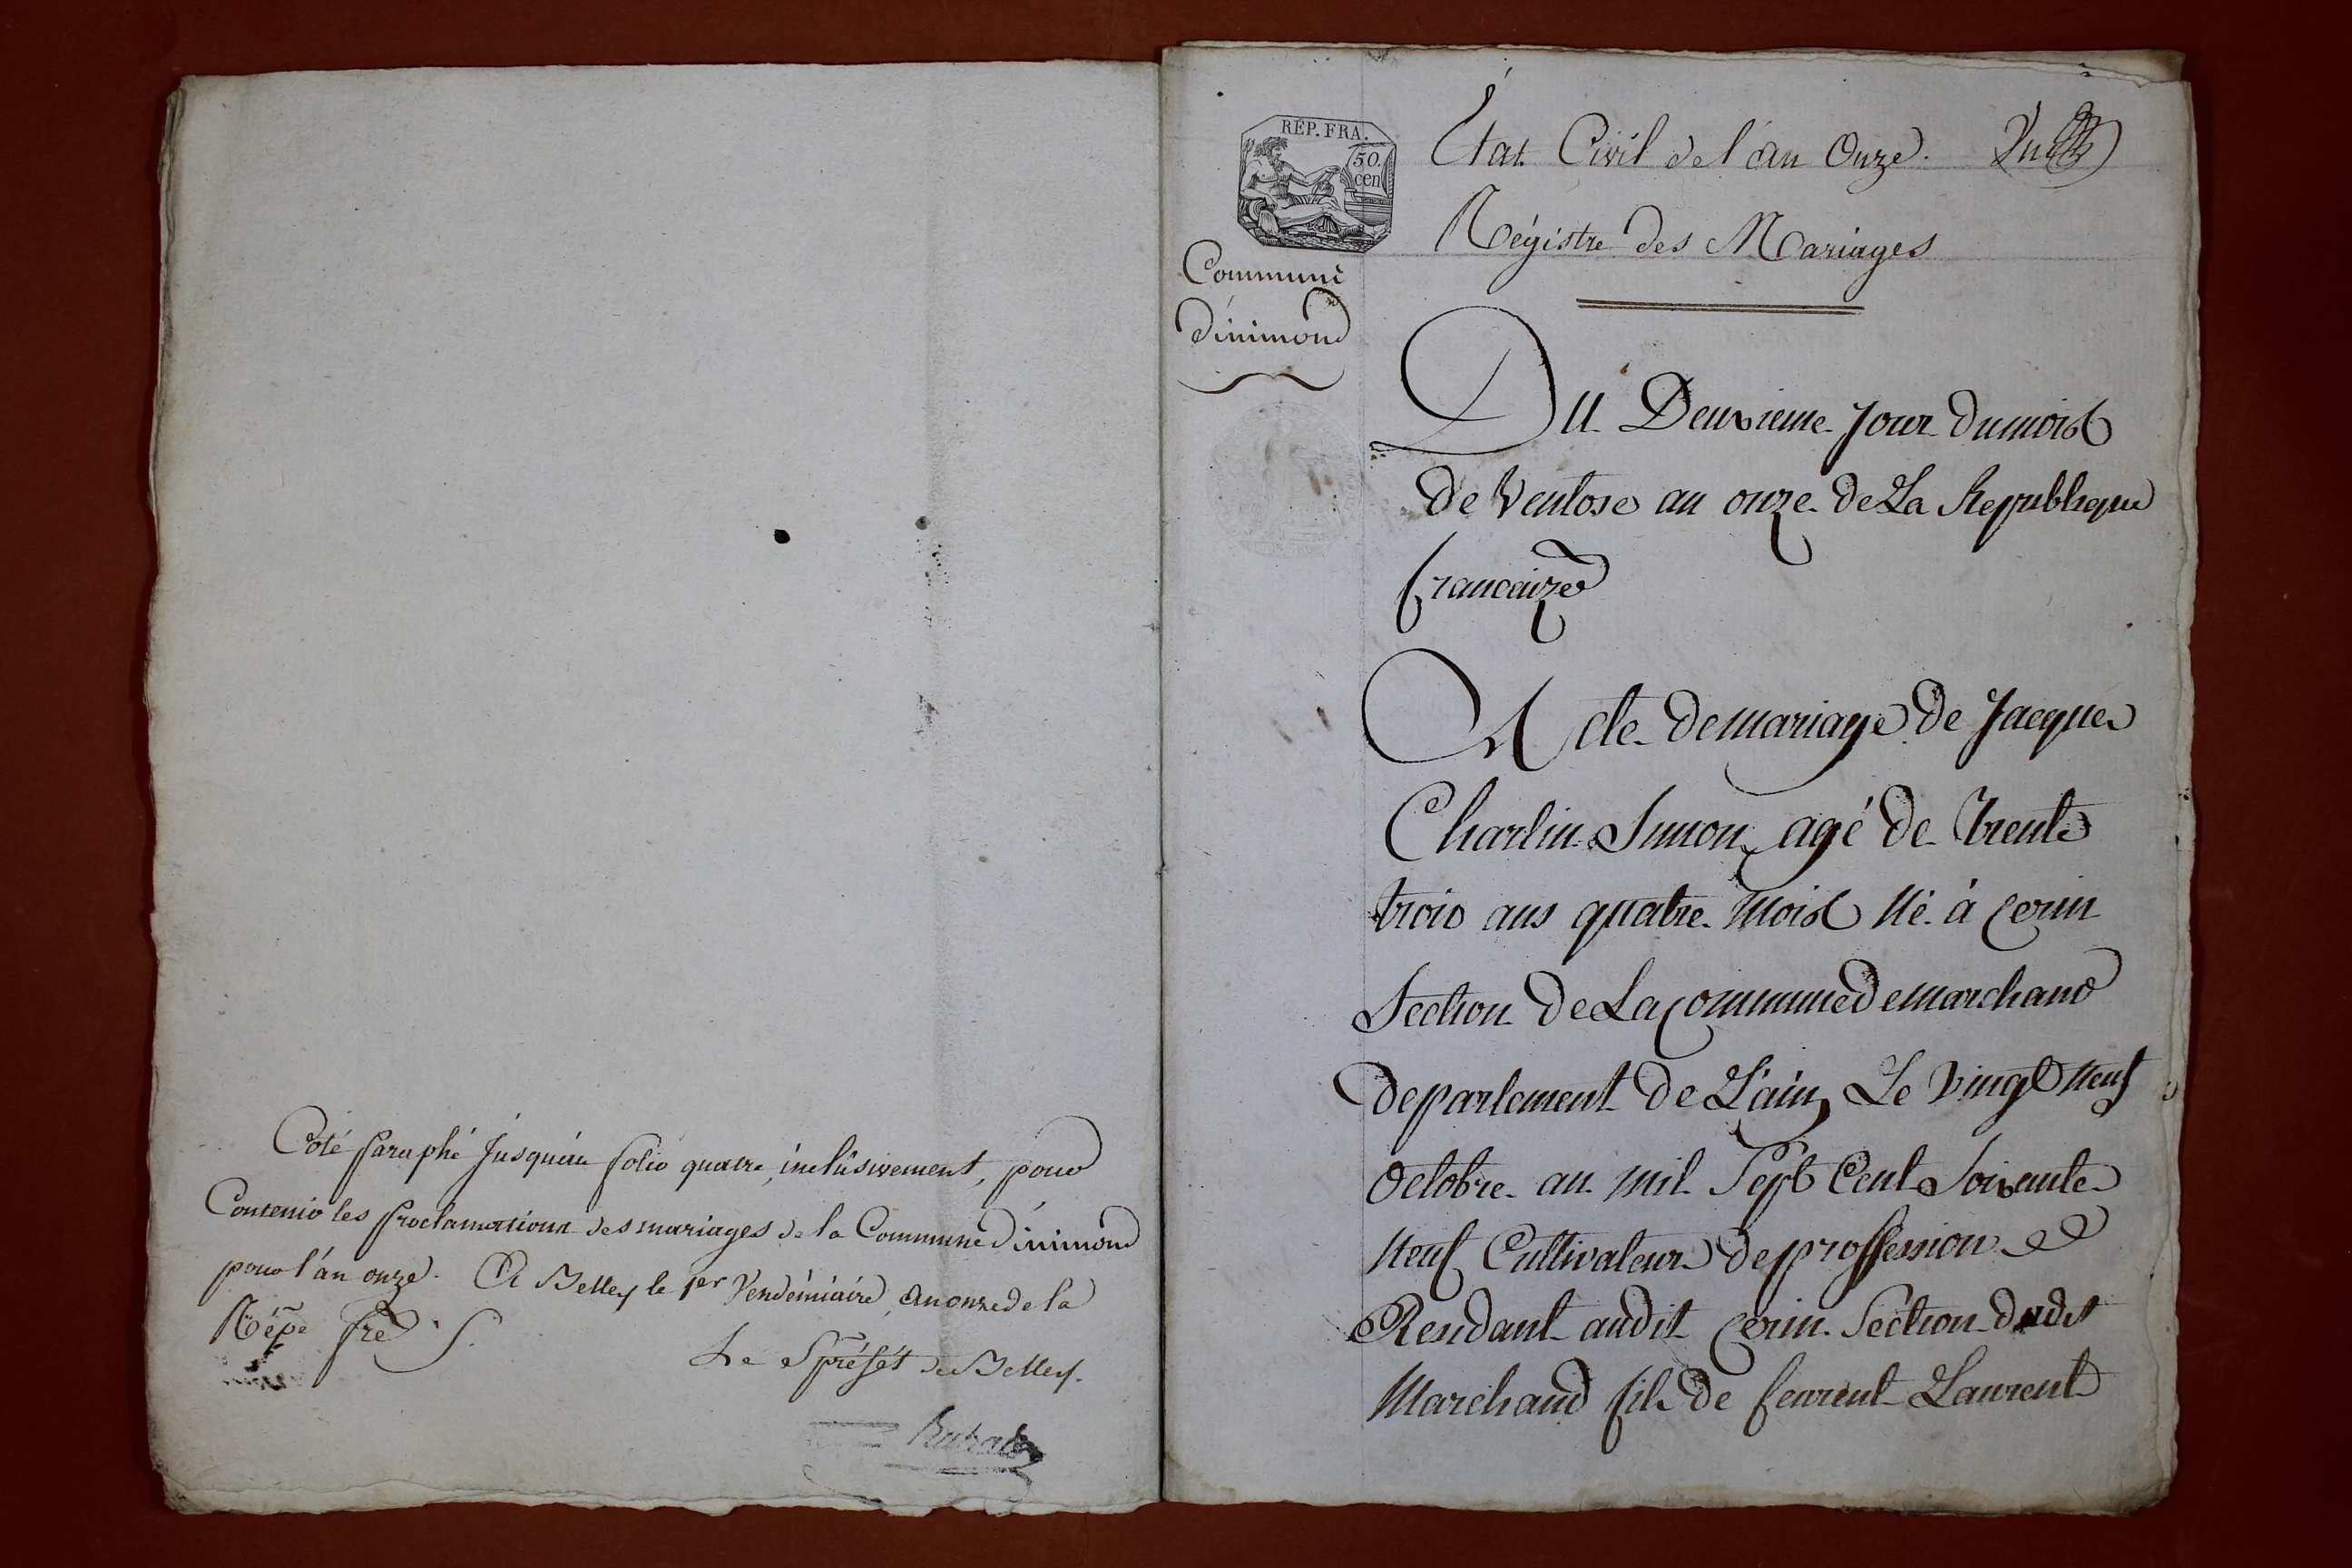 Coté paraphé jusqu'au folio quatre, inclusivement, pour
Contenir les proclamations des mariages de la Commune d'inimond
pour l'an onze. A Belley le 1er Vendémiaire, an onze de la
Répe fre S.
Le S préfet de Belley.
RÉP. FRA.
50
cen
État Civil de l'an Onze.
Régistre des Mariages
Commune
d'inimond
Du Deuxieme Jour du mois
de Ventose an onze de La Republique
francaize
Acte de mariage de Jacques
Charlin Simon agé de Trente
trois ans quatre Mois Né à Cerin
Section de La commune de marchand
departement de L'ain, Le Vingt Neuf
Octobre an mil Sept Cent Soixante
Neuf Cultivateur de proffession
Resdant audit Cerin Section dudit
Marchand fils de feurent Laurent